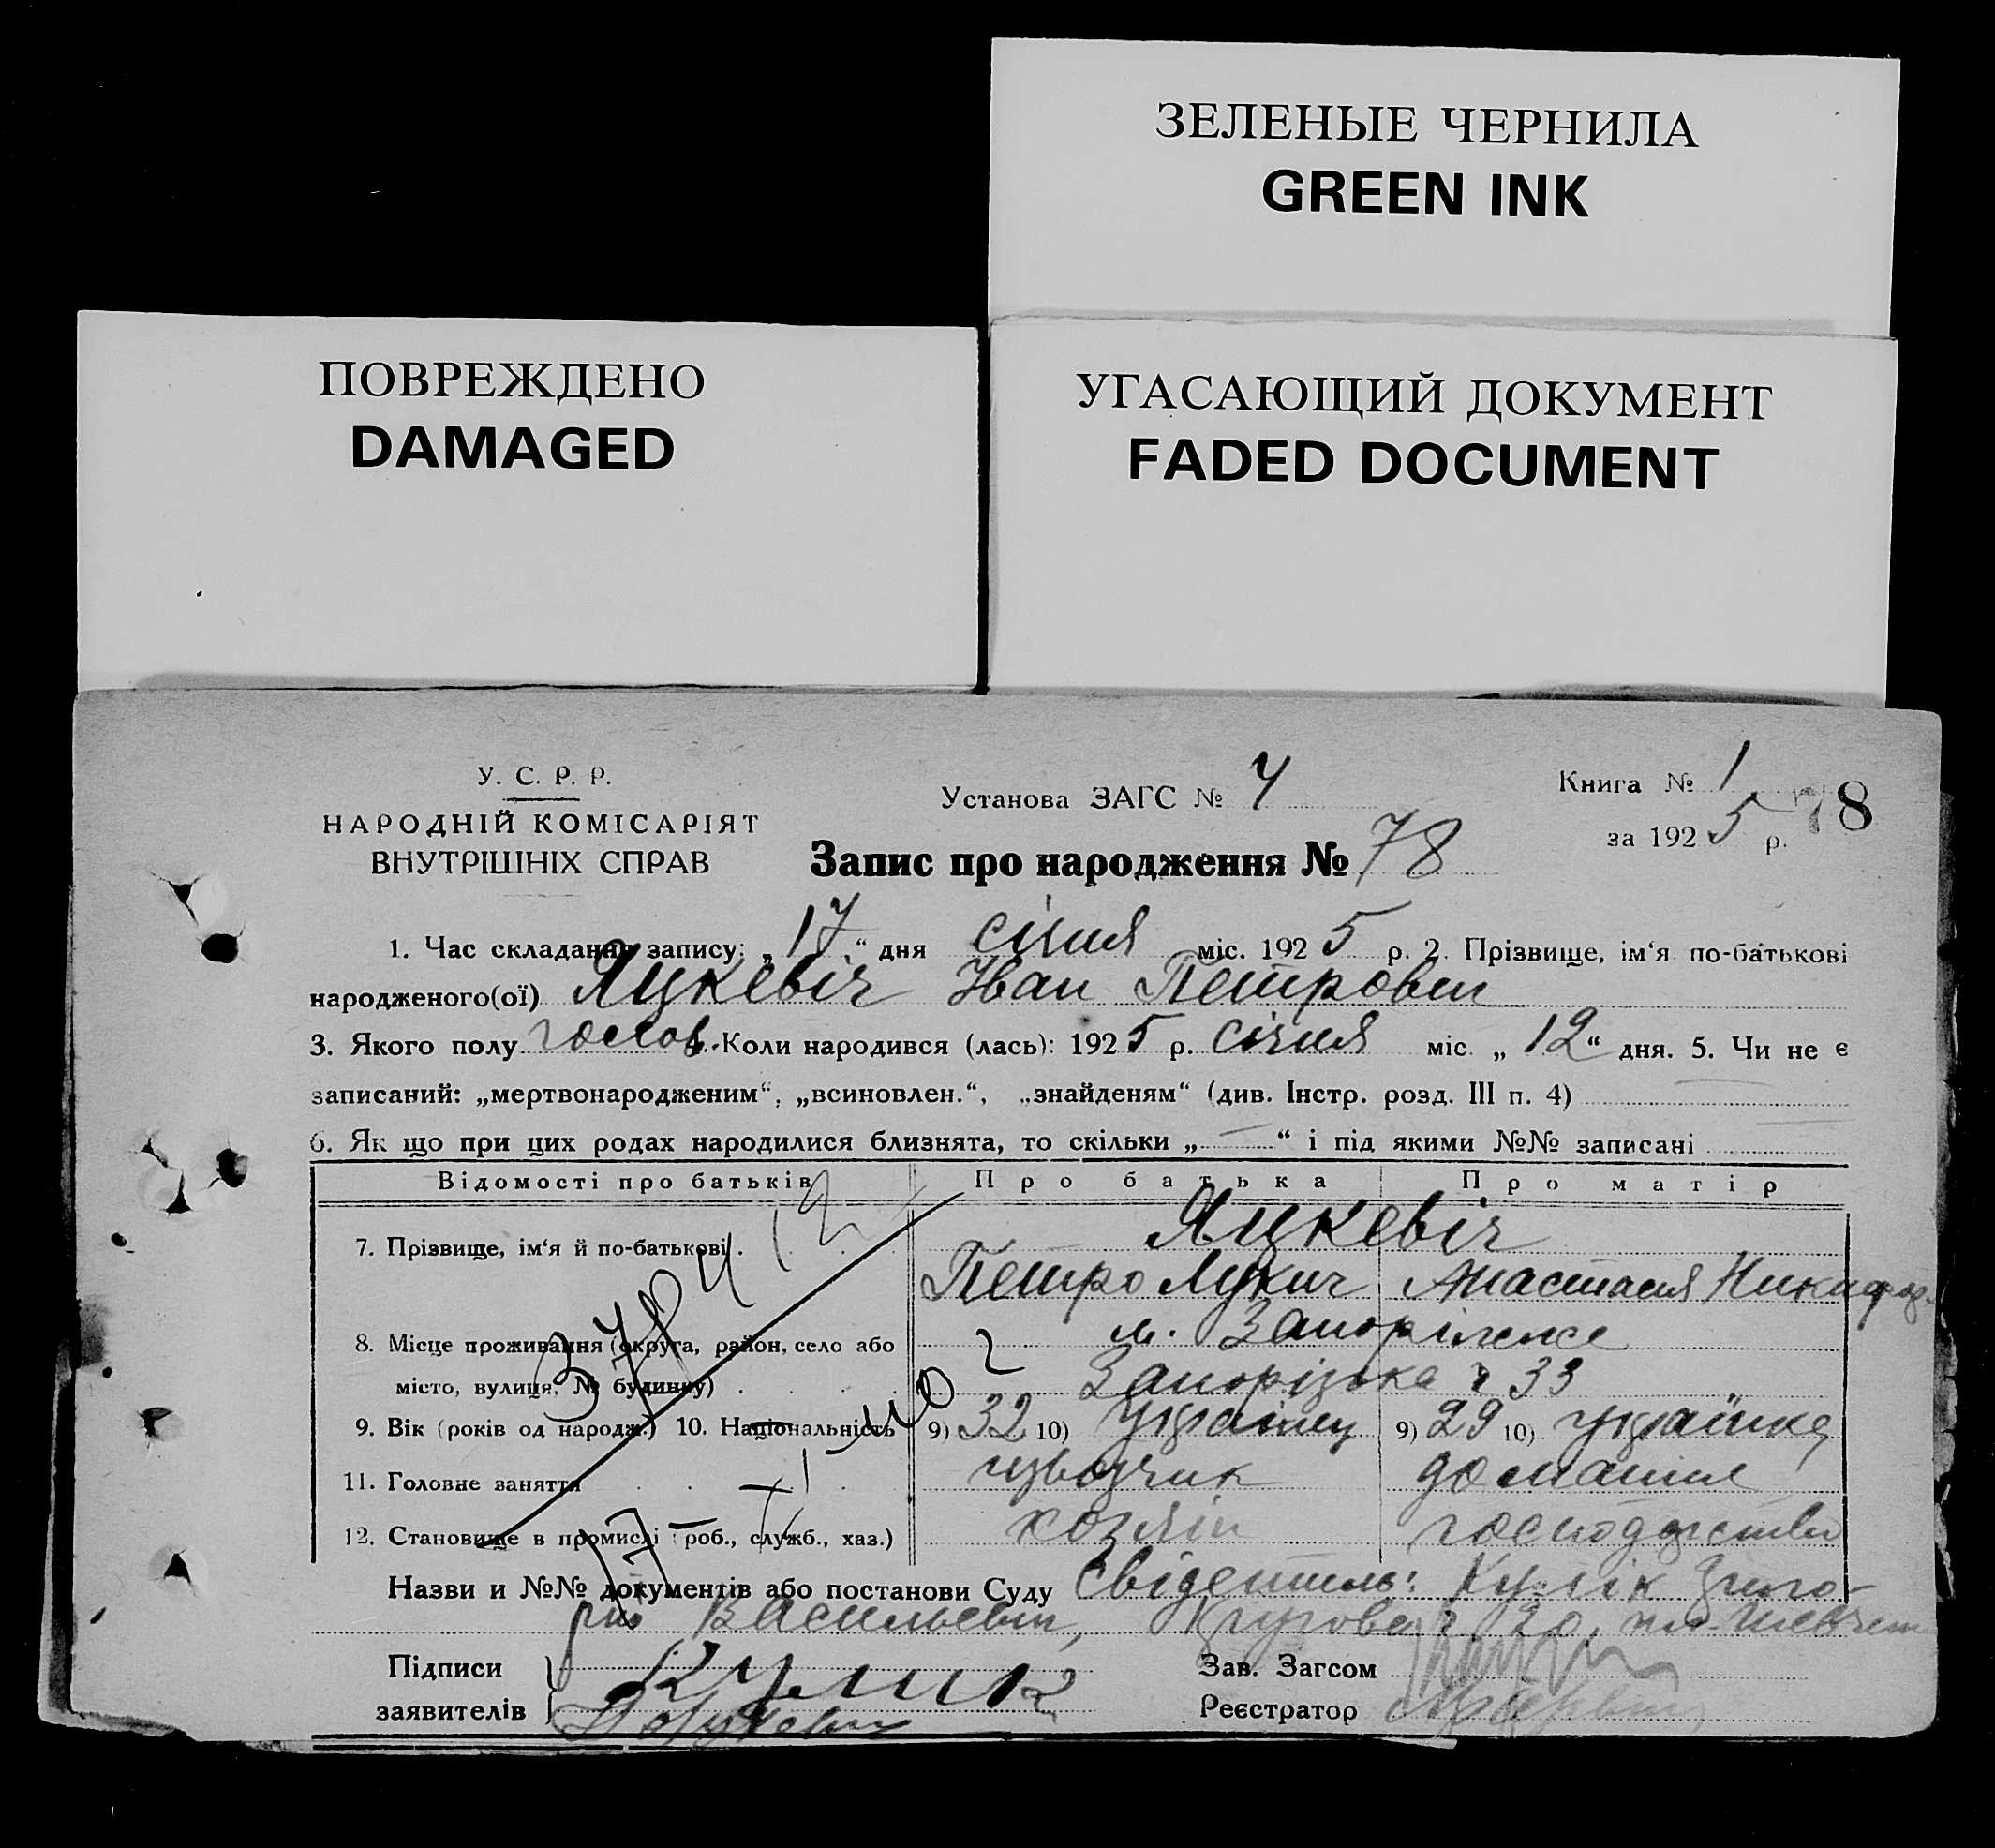 ЗЕЛЕНЫЕ ЧЕРНИЛА
GREEN INK
ПОВРЕЖДЕНО
DAMAGED
УГАСАЮЩИЙ ДОКУМЕНТ
FADED DOCUMENT
У. С. Р. Р.
НАРОДНІЙ КОМІСАРІЯТ
ВНУТРІШНІХ СПРАВ
Установа ЗАГС № 4
Книга № 1
за 1925 р.
78
Запис про народження № 78
1. Час складання запису: „17“ дня січня міс. 1925 р. 2. Прізвище, ім‘я по-батькові
народженого(ої) Яцкевіч Іван Петрович
3. Якого полу чолов. 4. Коли народився (лась): 1925 р. січня міс. „12“ дня. 5. Чи не є
записаний: „мертвонародженим“, „всиновлен.“, „знайденям“ (див. Інстр. розд. III п. 4) —
6. Як що при цих родах народилися близнята, то скільки „—“ і під якими №№ записані —
Відомості про батьків Про батька Про матір
7. Прізвище, ім‘я й по-батькові . Яцкевіч
Петро Лукич Анастасія Никифор.
8. Місце проживання (округа, район, село або м. Запоріжже
місто, вулиця, № будинку) Запорізька ч 33
9. Вік (років од народж.) 10. Національність 9) 32 10) Українець 9) 29 10) українка
11. Головне заняття ізвозчик домашнє
12. Становище в промислі (роб., служб., хаз.) хозяїн господарство
Назви и №№ документів або постанови Суду Свідетель: Кулік Григо-
рій Васильевич, 20,
Підписи Кулик Зав. Загсом
заявителів Реєстратор